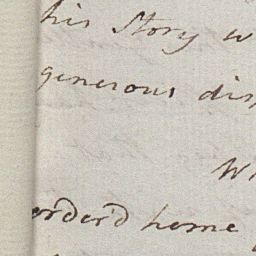 his Story w
generous dis
Wh
erder'd home